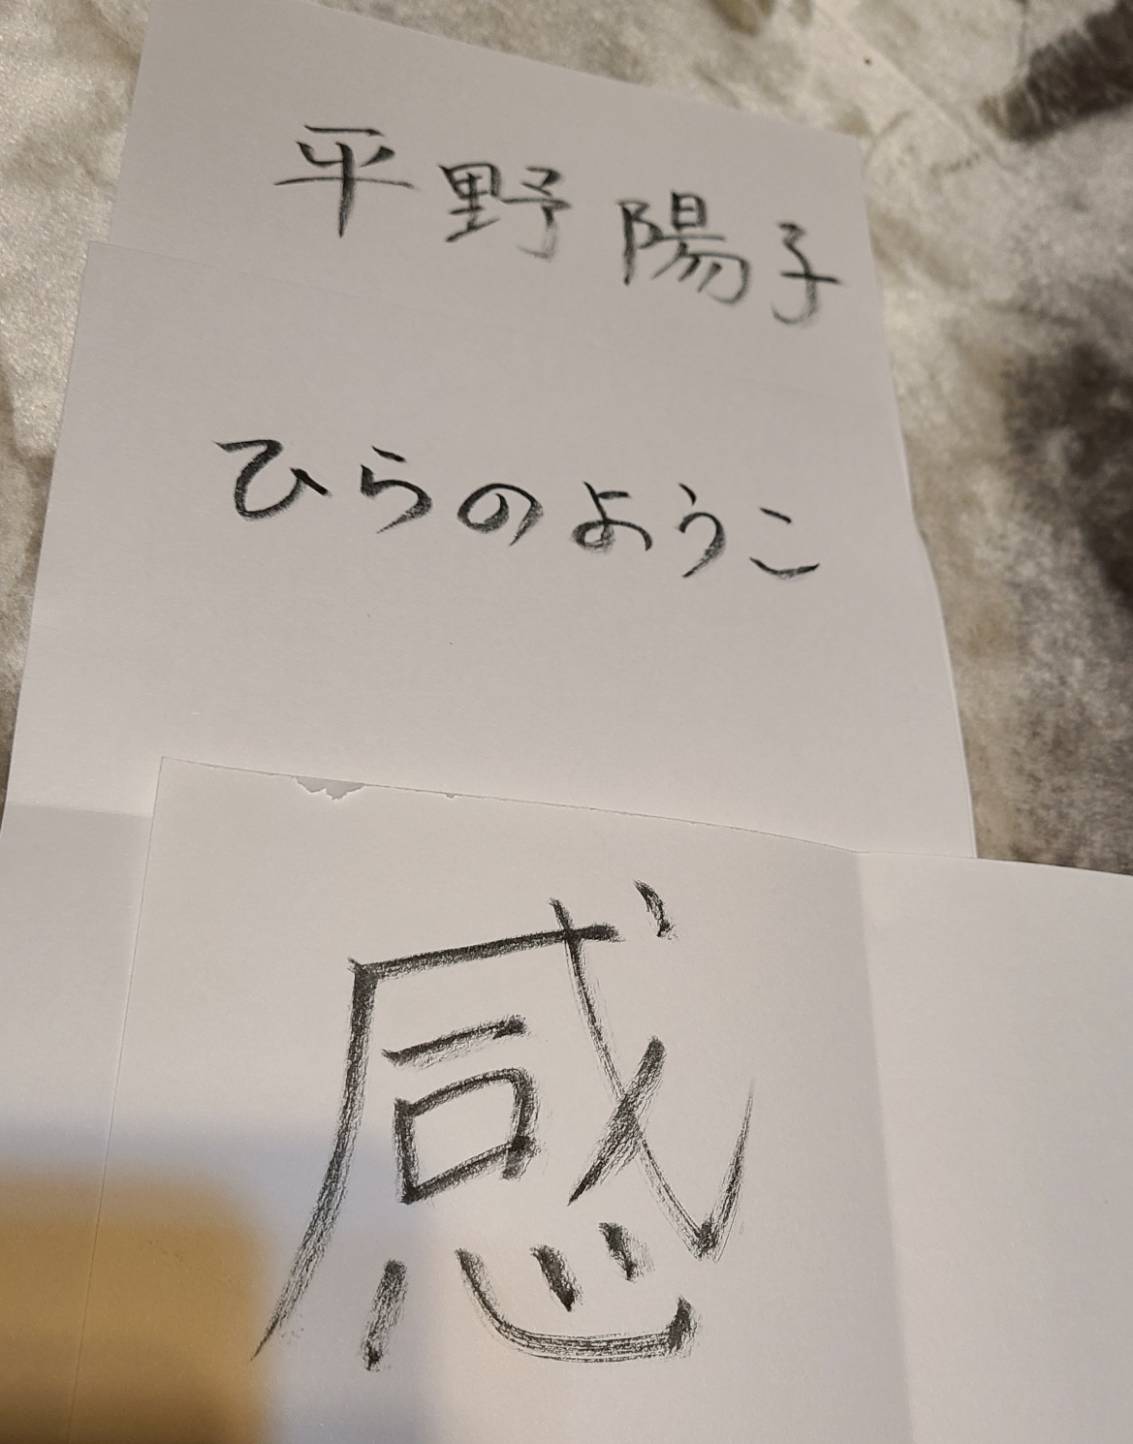 平野陽子
ひらのようこ
感